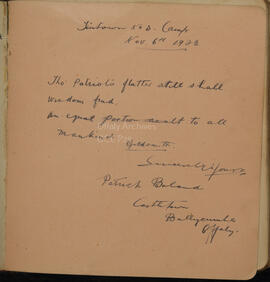 Tintown No D. Camp
Nov. 6th 1923
The Patriots flatter still shall
wisdom find.
An equal portion dealt to all
Mankind.
Goldsmith.
Sincerely Yours
Patrick Boland
Ballycumber
Offaly.
Offaly Archives